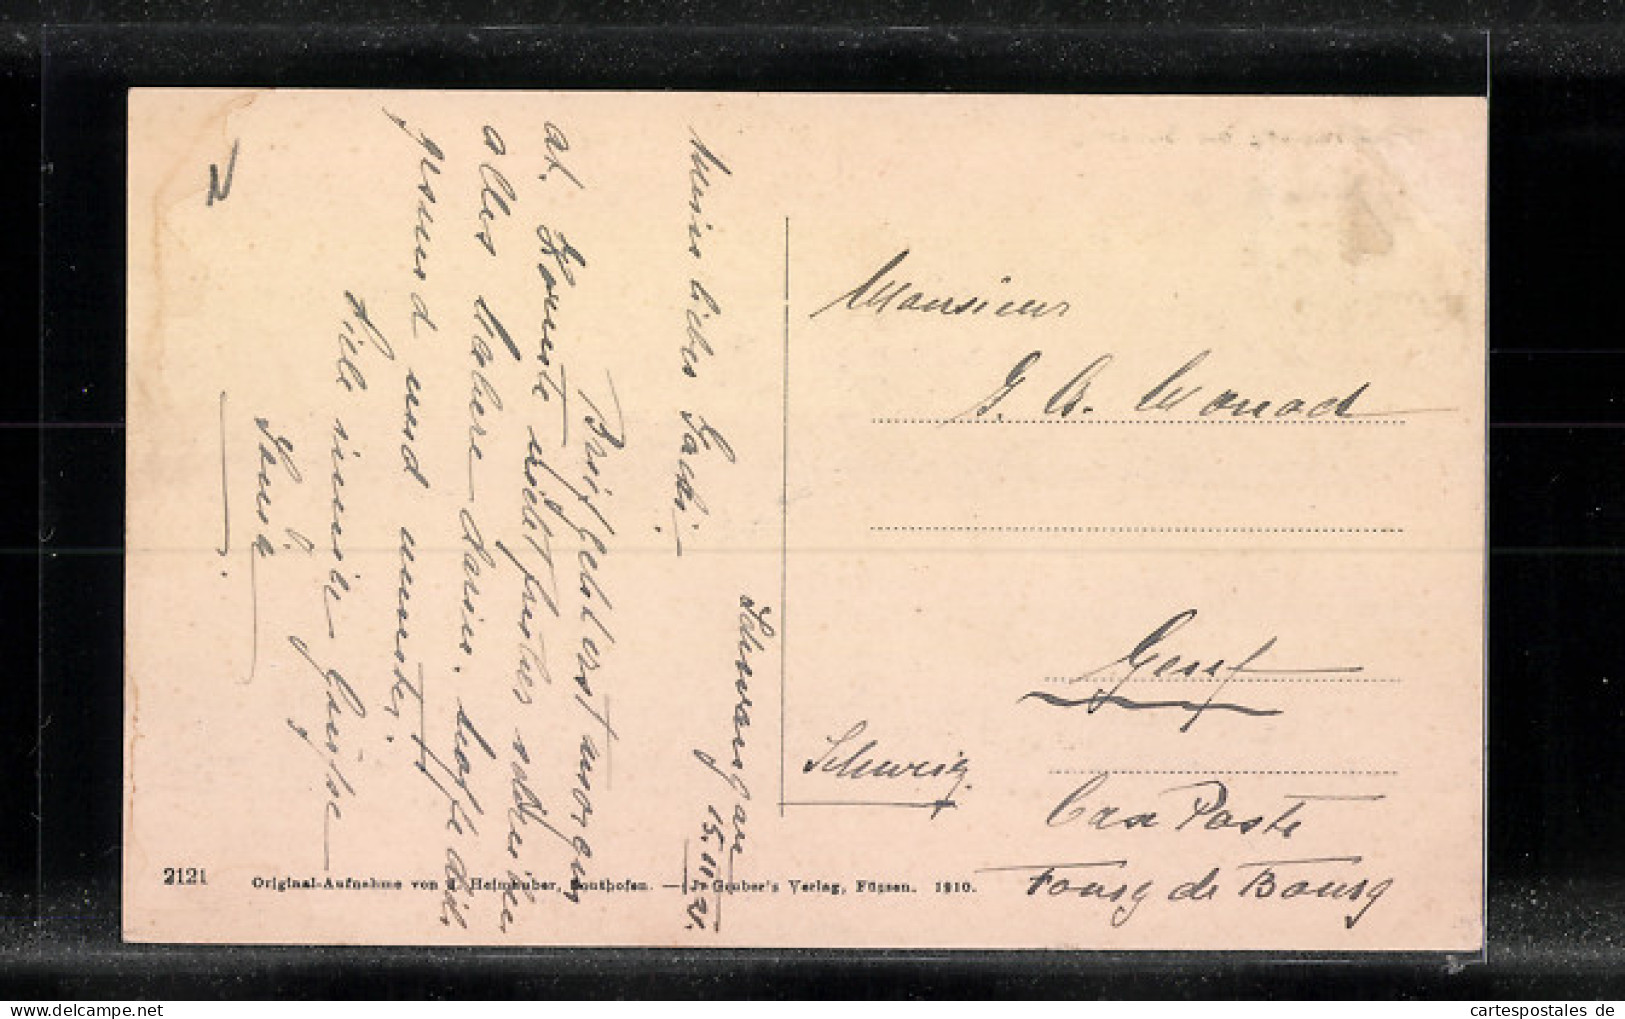 Schwangau
Mein liebes Gacki!
Brief geht erst morgen
ab. Konnte nicht früher schreiben
alles Nähere darin. hoffe dich
gesund und munter.
Viele innige Grüsse
Monsieur
G. A. Monod
Genf
Schweiz
Case Poste
Bourg de
2
2121 Original-Aufnahme von Heimhuber, Sonthofen. — Jr Gruber's Verlag, Füssen. 1910.
cartespostales de